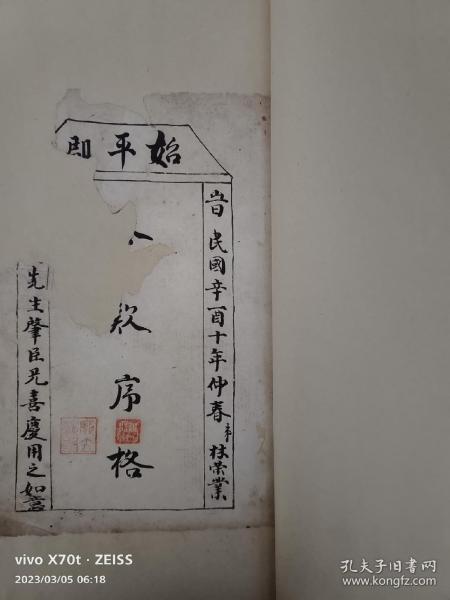 始平郡
民國辛酉十年仲春
林荣業
欵序格
先生肇臣兄喜慶用之如意
vivo X70t · ZEISS
2023/03/05 06:18
孔夫子旧书网
www.kongfz.com